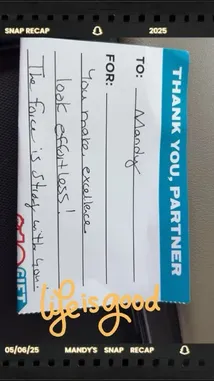 SNAP RECAP
2025
THANK YOU, PARTNER
TO: Mandy
FOR:
You make excellence
look effortless!
The force is strong with you.
GIFT
life is good
05/06/25
MANDY'S SNAP RECAP